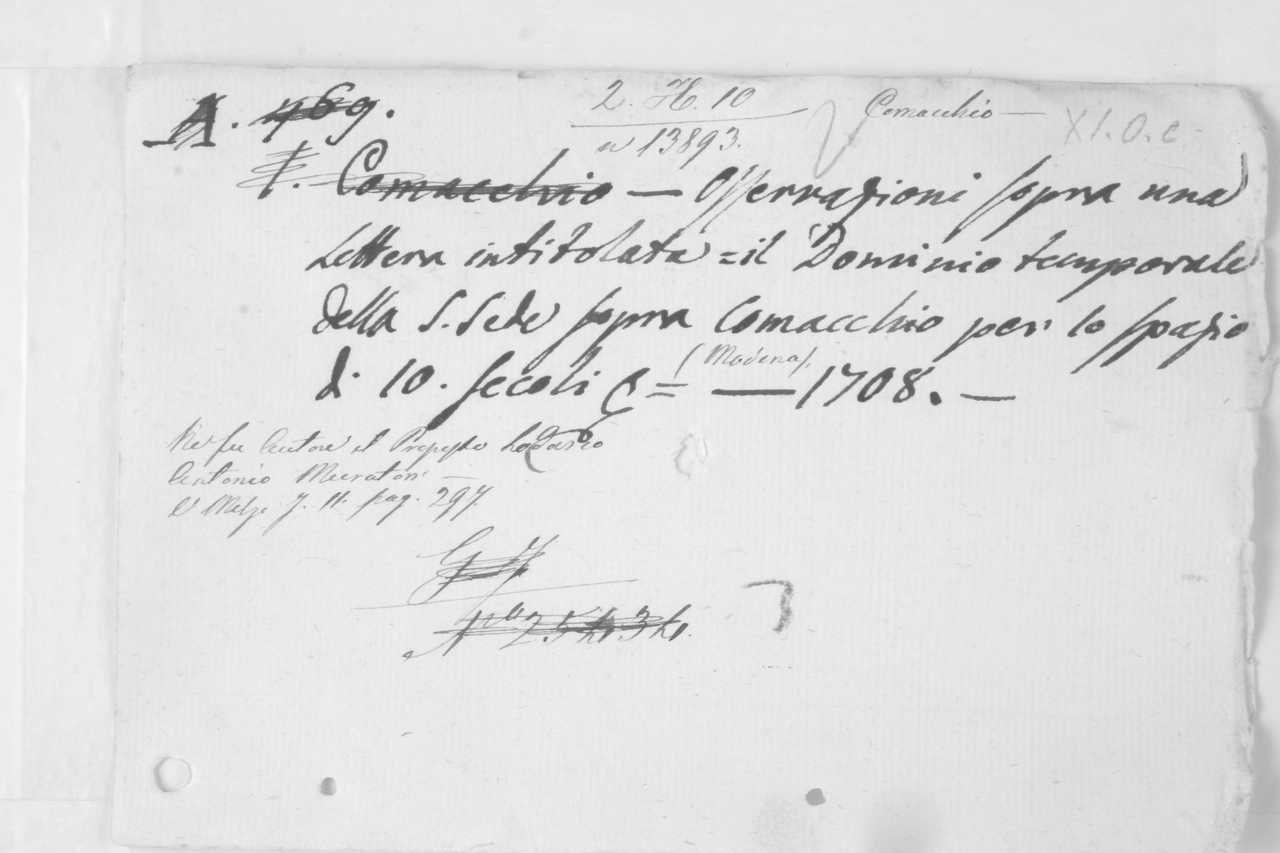 A. 469.
2. H. 10
n 13893.
Comacchio —
XI. O. c
f. Comacchio — Osservazioni sopra una
Lettera intitolata = il Dominio temporale
della S. Sede sopra Comacchio per lo spazio
di 10. secoli &= — 1708. —
(Modena).
Ne fu Autore il Proposto Lodovico
Antonio Muratori —
V. Melzi T. II. pag. 297.
N.° 25434.